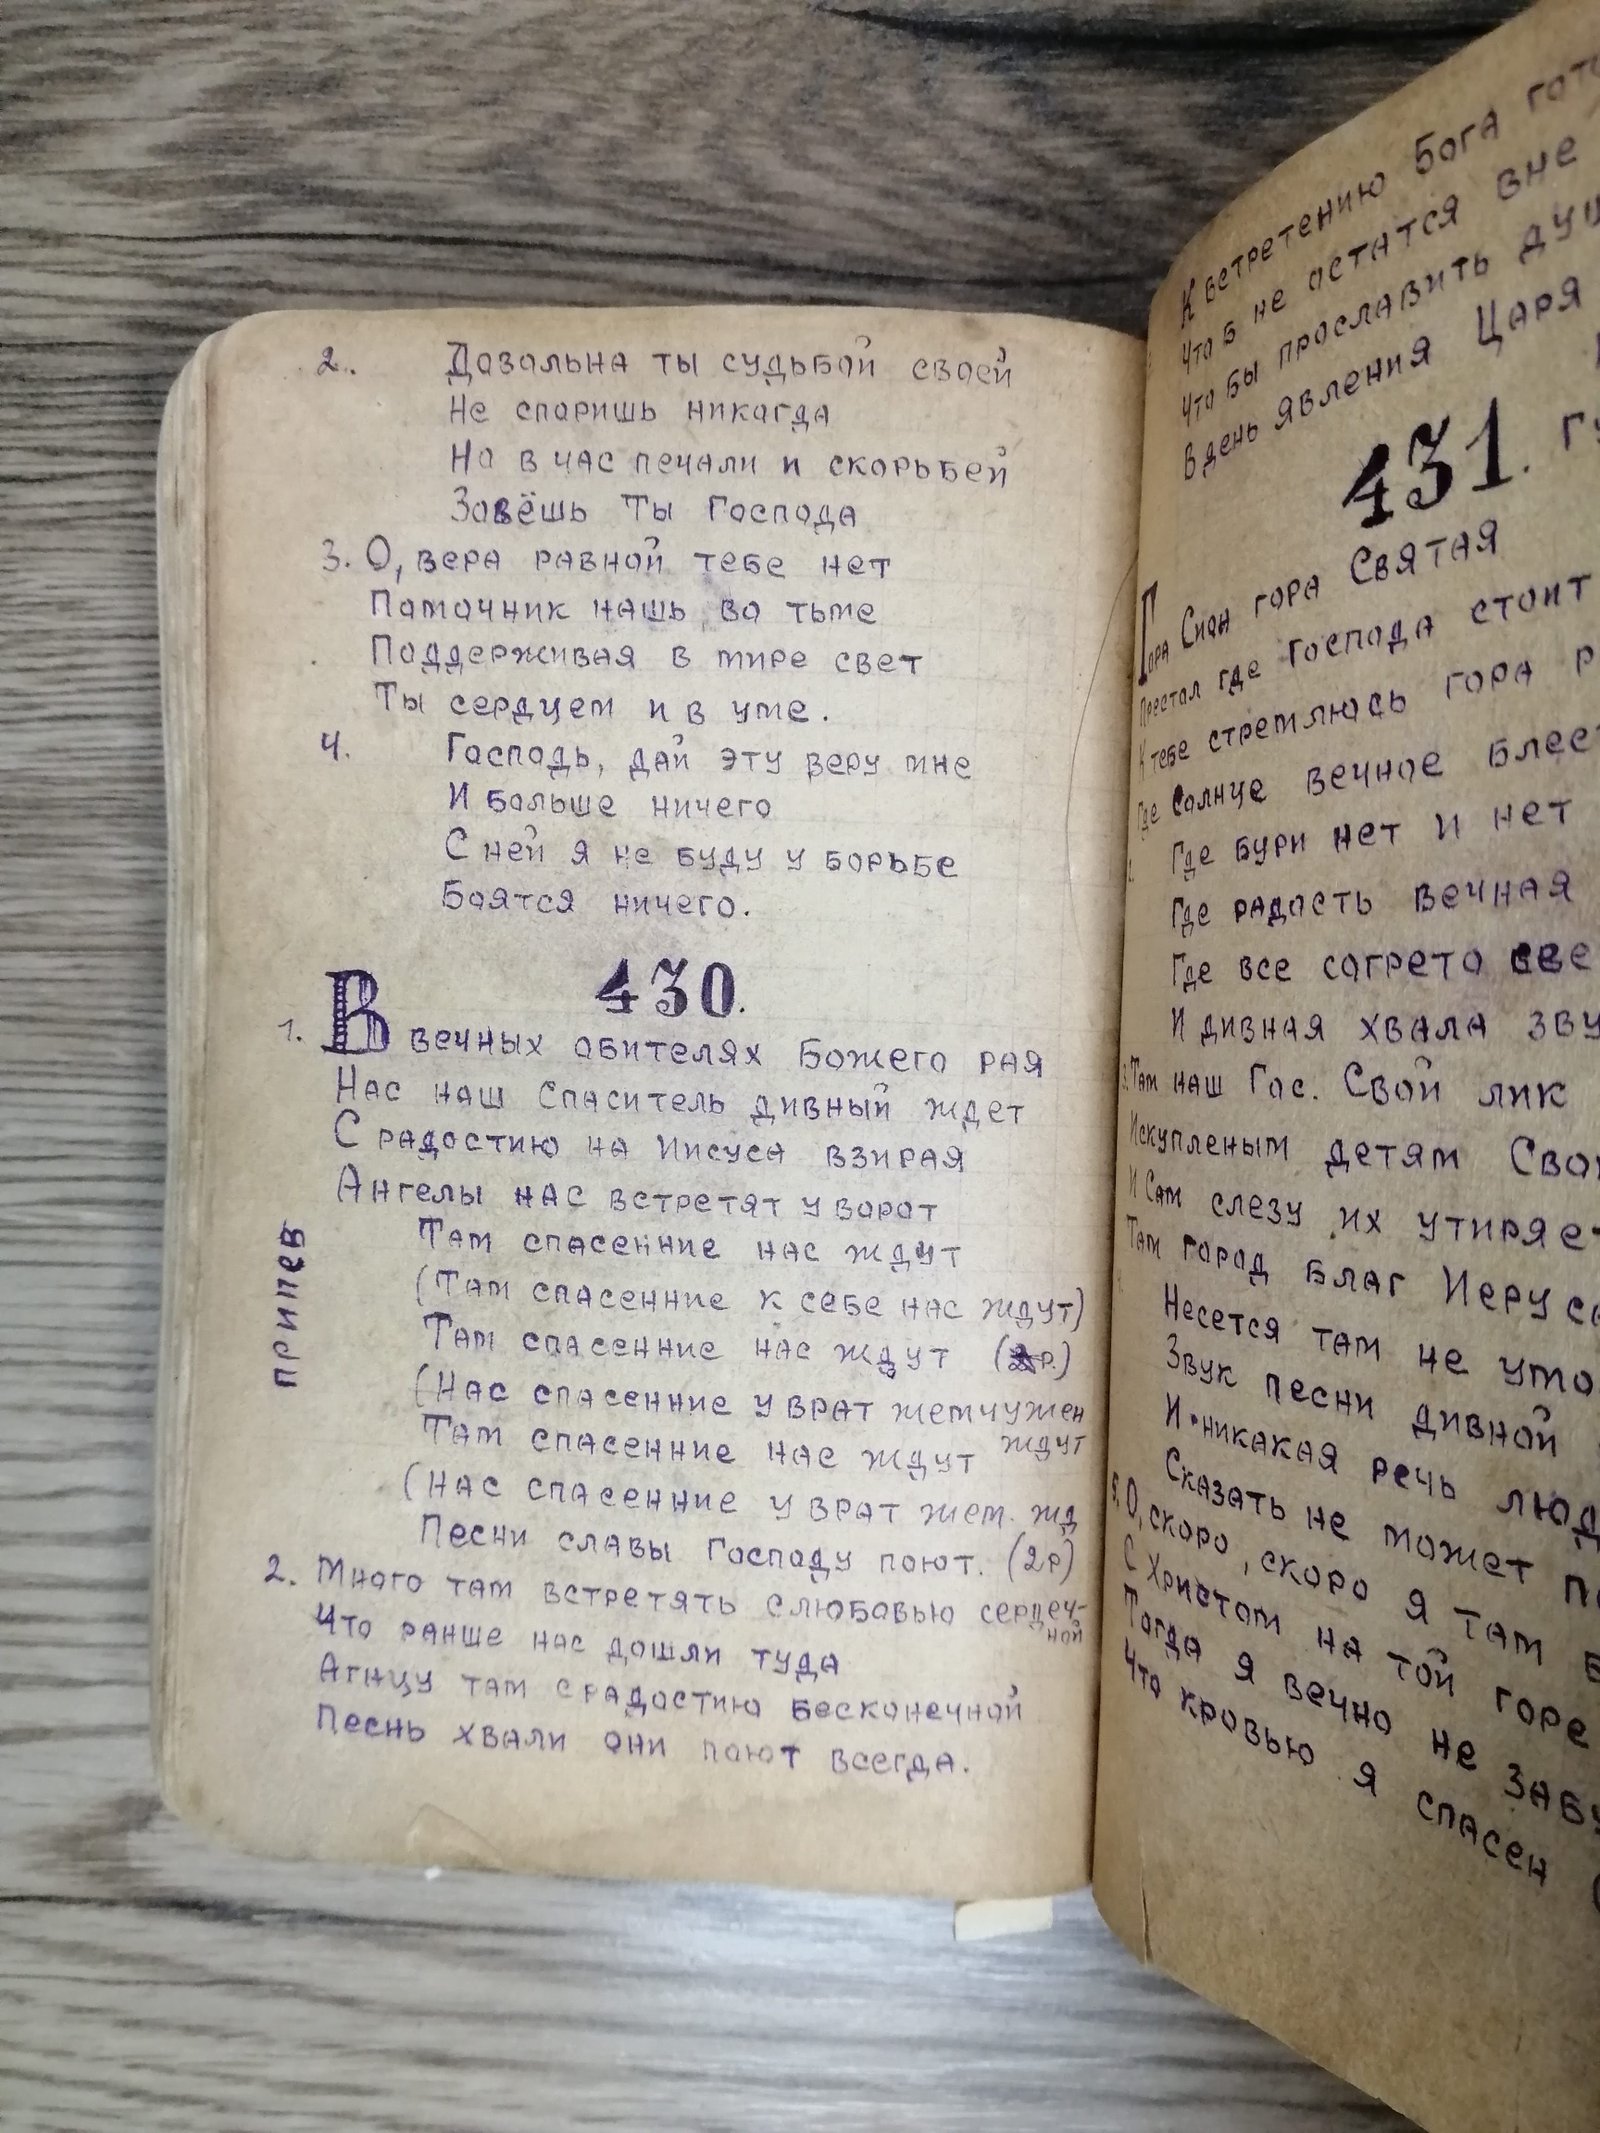 2. Довольна ты судьбой своей
Не споришь никогда
Но в час печали и скорьбей
Зовёшь Ты Господа
3. О, вера равной тебе нет
Поточник нашь во тьме
Поддерживая в мире свет
Ты сердцем и в уме.
4. Господь, дай эту веру мне
И больше ничего
С ней я не буду у борьбе
Боятся ничего.
430.
1. В вечных обителях Божего рая
Нас наш Спаситель дивный ждет
С радостию на Иисуса взирая
Ангелы нас встретят у ворот
припев
Там спасенние нас ждут
(Там спасенние к себе нас ждут)
Там спасенние нас ждут (2р.)
(Нас спасенние у врат жемчужен
ждут
Там спасенние нас ждут
(Нас спасенние у врат жем. жд
Песни славы Господу поют. (2р)
2. Много там встретять с любовью сердеч-
ной
Что ранше нас дошли туда
Агнцу там с радостию бесконечной
Песнь хвали они поют всегда.
К встретению Бога
Что б не остатся вне
Что бы прославить
В день явления Царя
431.
Гора Сион гора Святая
Престол где Господа стоит
К тебе стремлюсь гора
Где Солнце вечное
Где бури нет и нет
Где радость вечная
Где все согрето
И дивная хвала
3. Там наш Гос. Свой лик
Искупленым детям
И Сам слезу их
Там город благ
Несется там не
Звук песни дивной
И никакая речь
Сказать не может
5. О, скоро, скоро я там
С Христом на той горе
Тогда я вечно не
Что кровью я спасен